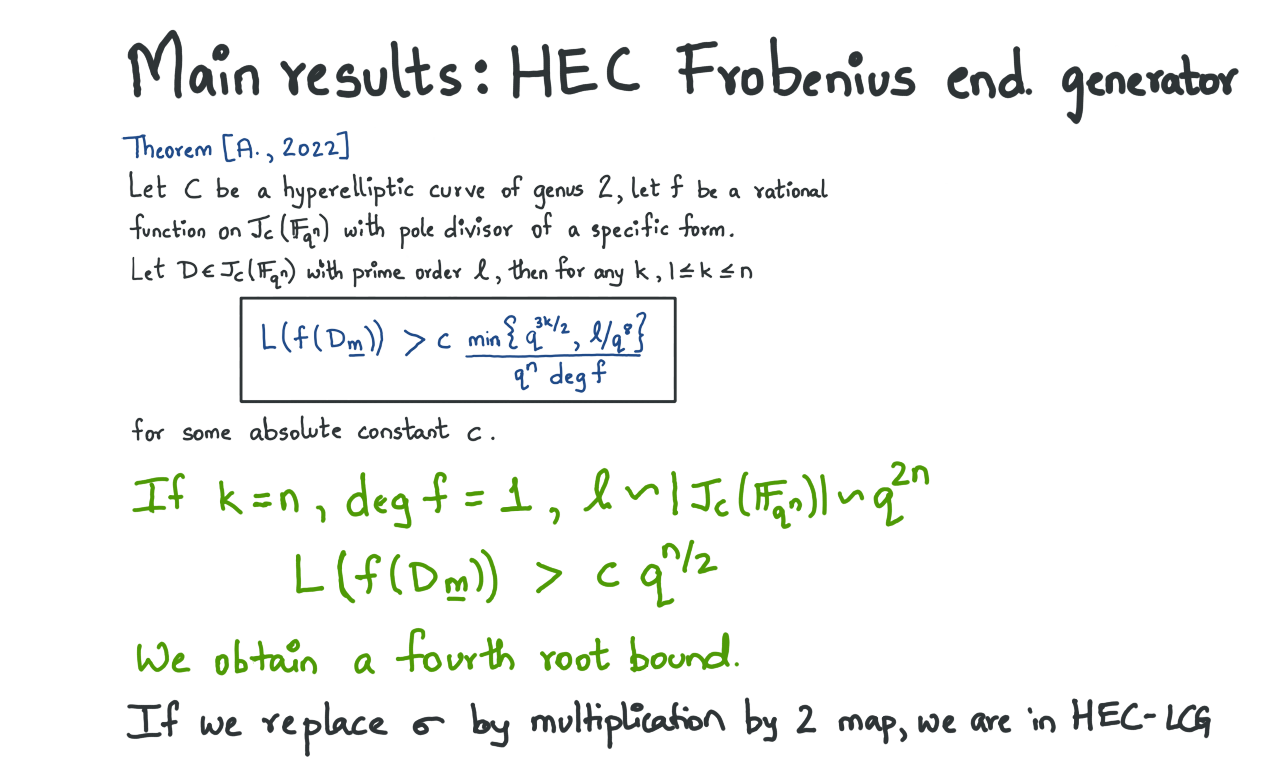 Main results: HEC Frobenius end. generator
Theorem [A., 2022]
Let C be a hyperelliptic curve of genus 2, let f be a rational
function on J_C(𝔽_{q^n}) with pole divisor of a specific form.
Let D ∈ J_C(𝔽_{q^n}) with prime order ℓ, then for any k, 1 ≤ k ≤ n
L(f(D_m̲)) > c min{q^{3k/2}, ℓ/q^8} / q^n deg f
for some absolute constant c.
If k = n, deg f = 1, ℓ ∽ |J_C(𝔽_{q^n})| ∽ q^{2n}
L(f(D_m̲)) > c q^{n/2}
We obtain a fourth root bound.
If we replace σ by multiplication by 2 map, we are in HEC-LCG